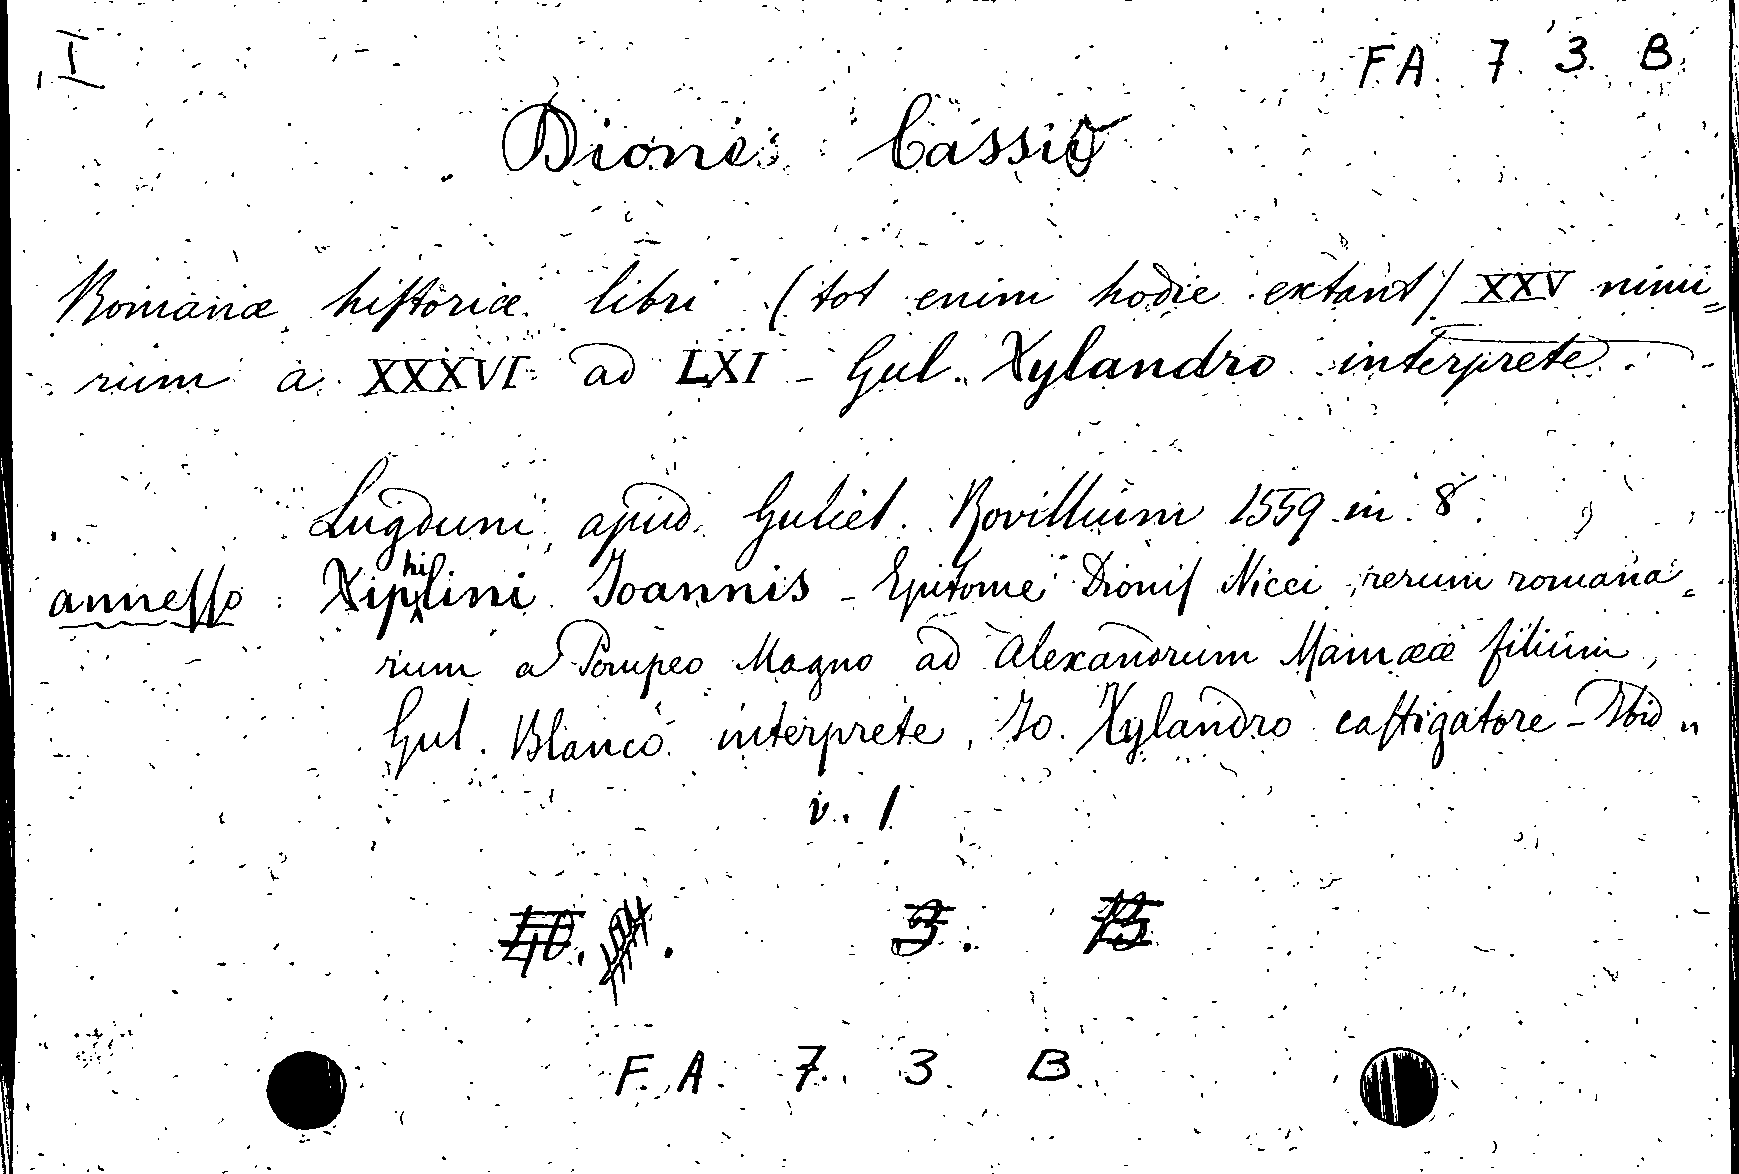 I
F. A. 7. 3. B.
Dione Cassio
Romanæ historiæ libri (tot enim hodie extant) XXV nimi=
rium a XXXVI ad LXI - Gul. Xylandro interprete.
Lugduni, apud. Guliel. Rovillium 1559 in 8.
annesso : Xiphilini Joannis - Epitome Dionis Nicei rerum romana=
rum a Pompeo Magno ad Alexandrum Mamææ filium,
Gul. Blanco interprete, Jo. Xylandro castigatore - Ibid "
v. 1
3. 
F. A. 7. 3. B.